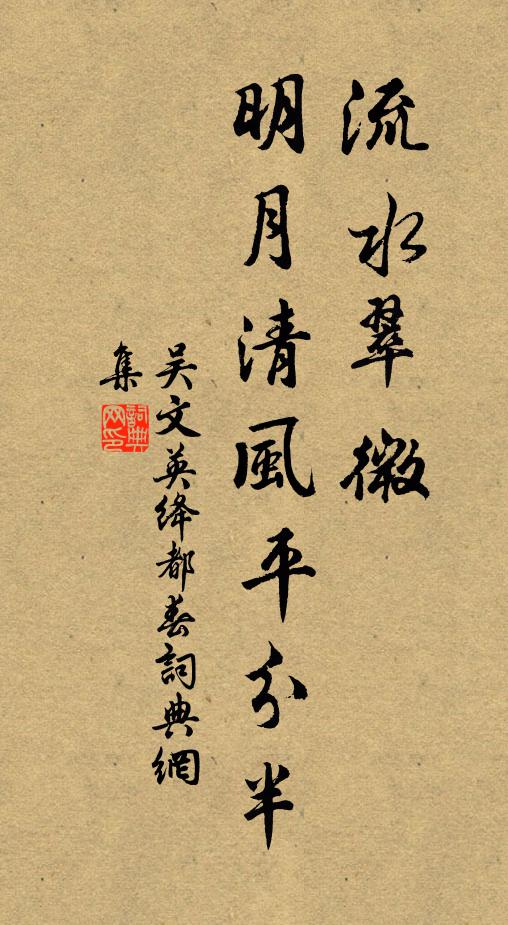 流水翠微
明月清風平分半
吴文英绛都春詞典網
集
詞典网印